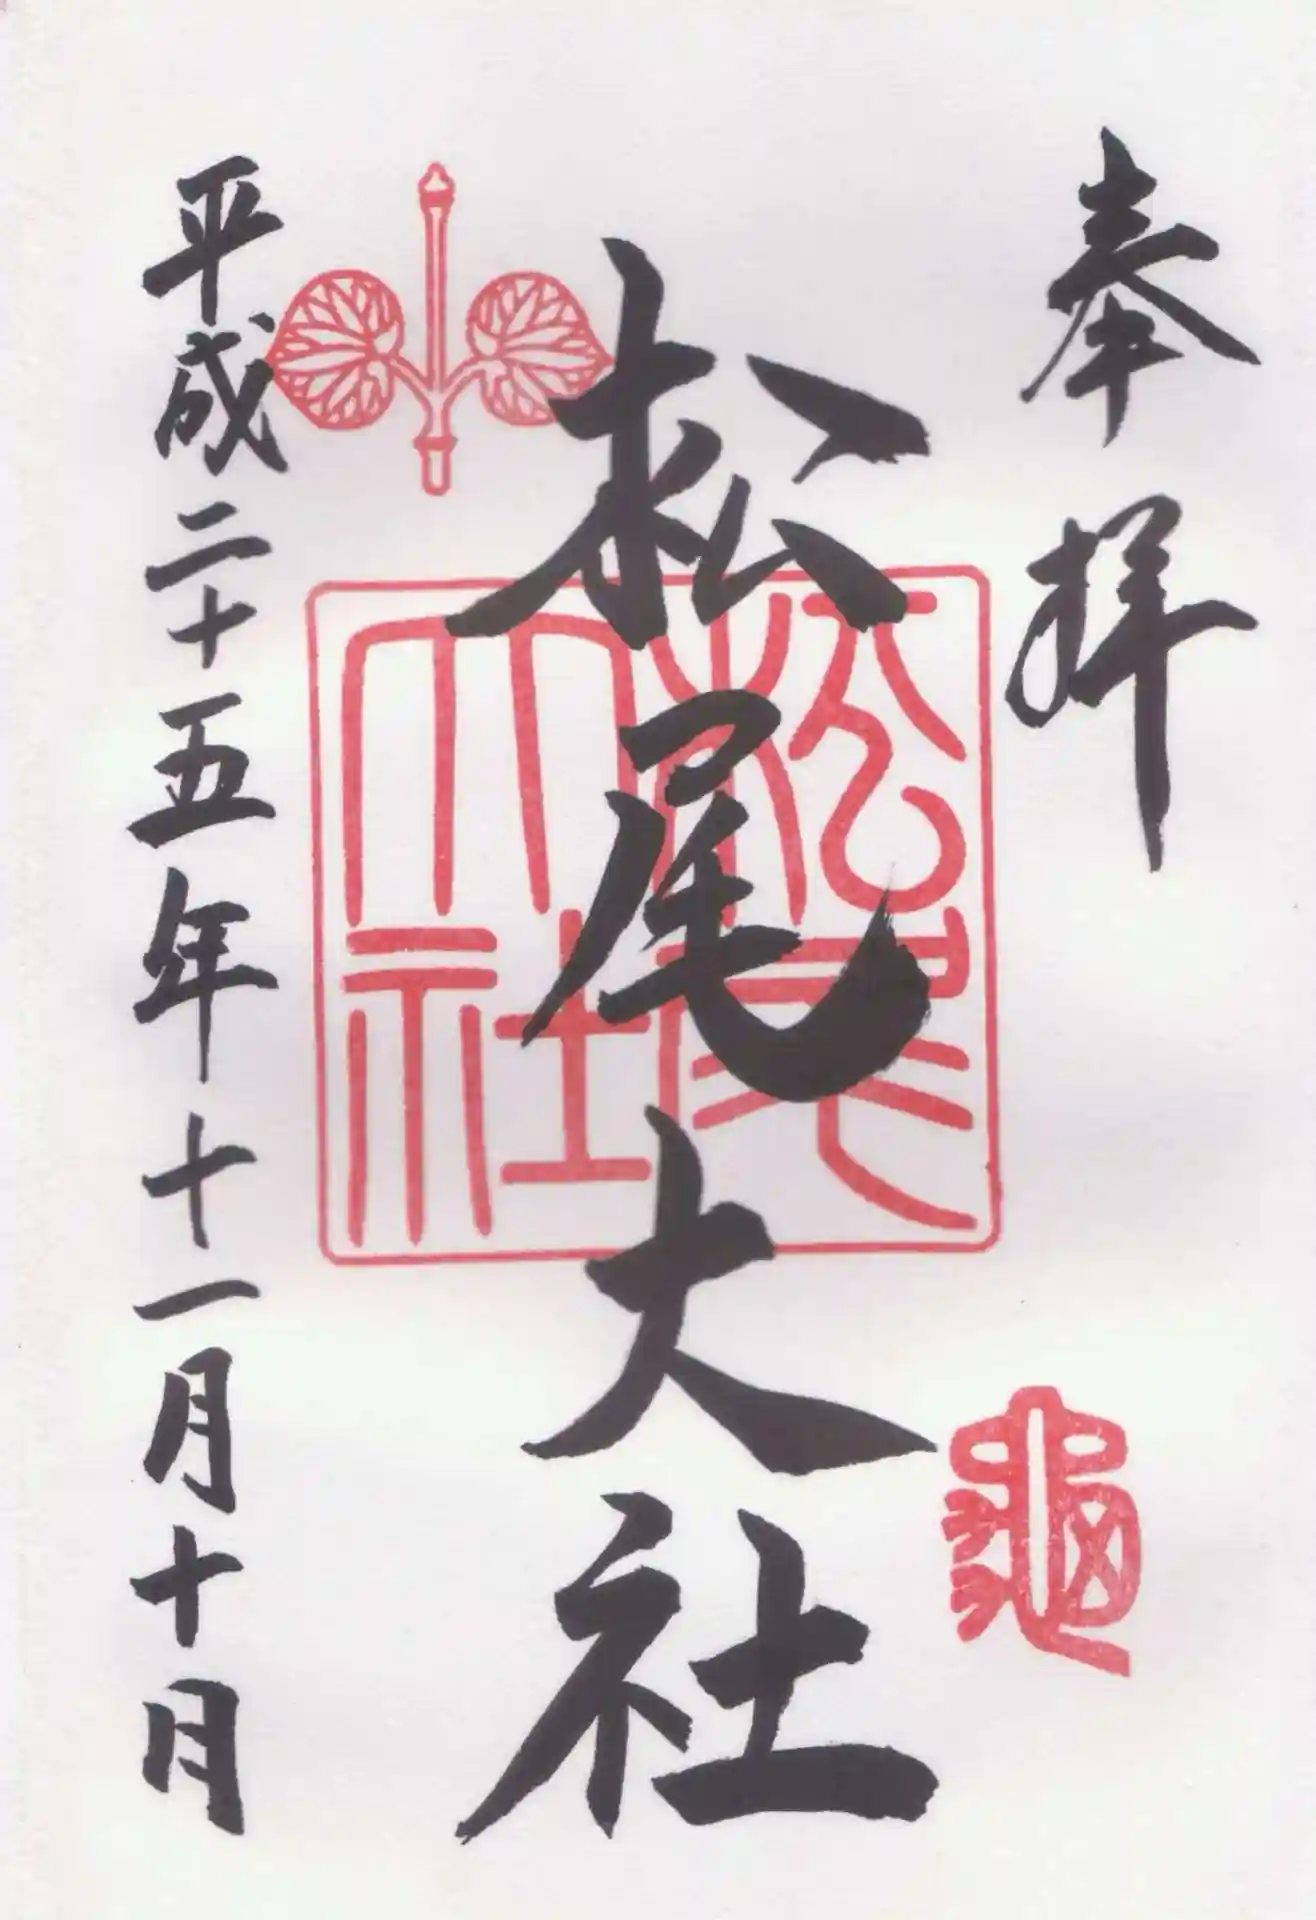 奉拝
松尾大社
松尾大社
亀
平成二十五年十一月十日